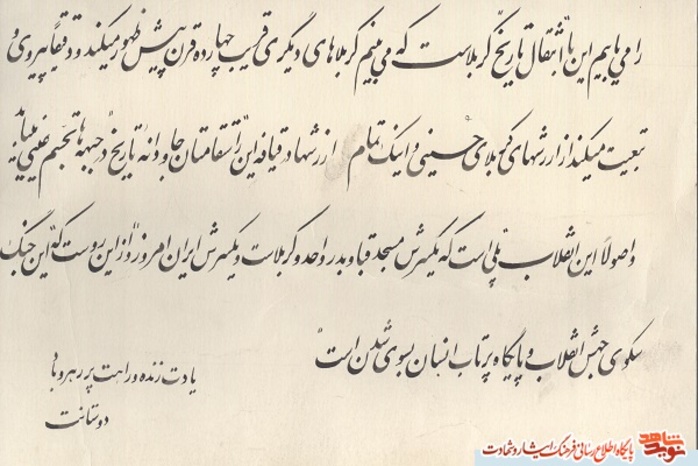 را می یابیم این بار "انتقال تاریخ" کربلاست که می بینیم کربلاهای دیگری قریب چهارده قرن پیش ظهور میکند و دقیقاً پیروی و
تبعیت میکند از ارزشهای کربلای حسینی و اینک تمام ارزشها در قیافه این "راست قامتان جاودانه تاریخ" در جبهه ها تجسم عینی مییابد
و اصولاً این انقلاب پلی است که یکسرش مسجد قبا و بدر و احد و کربلاست و یکسرش ایران امروز و از این روست که "این جنگ
سکوی جهش انقلاب و پایگاه پرتاب انسان بسوی شدن است"
یادت زنده و راهت پر رهرو باد
دوستانت
نوید شاهد
پایگاه اطلاع رسانی فرهنگ ایثار و شهادت